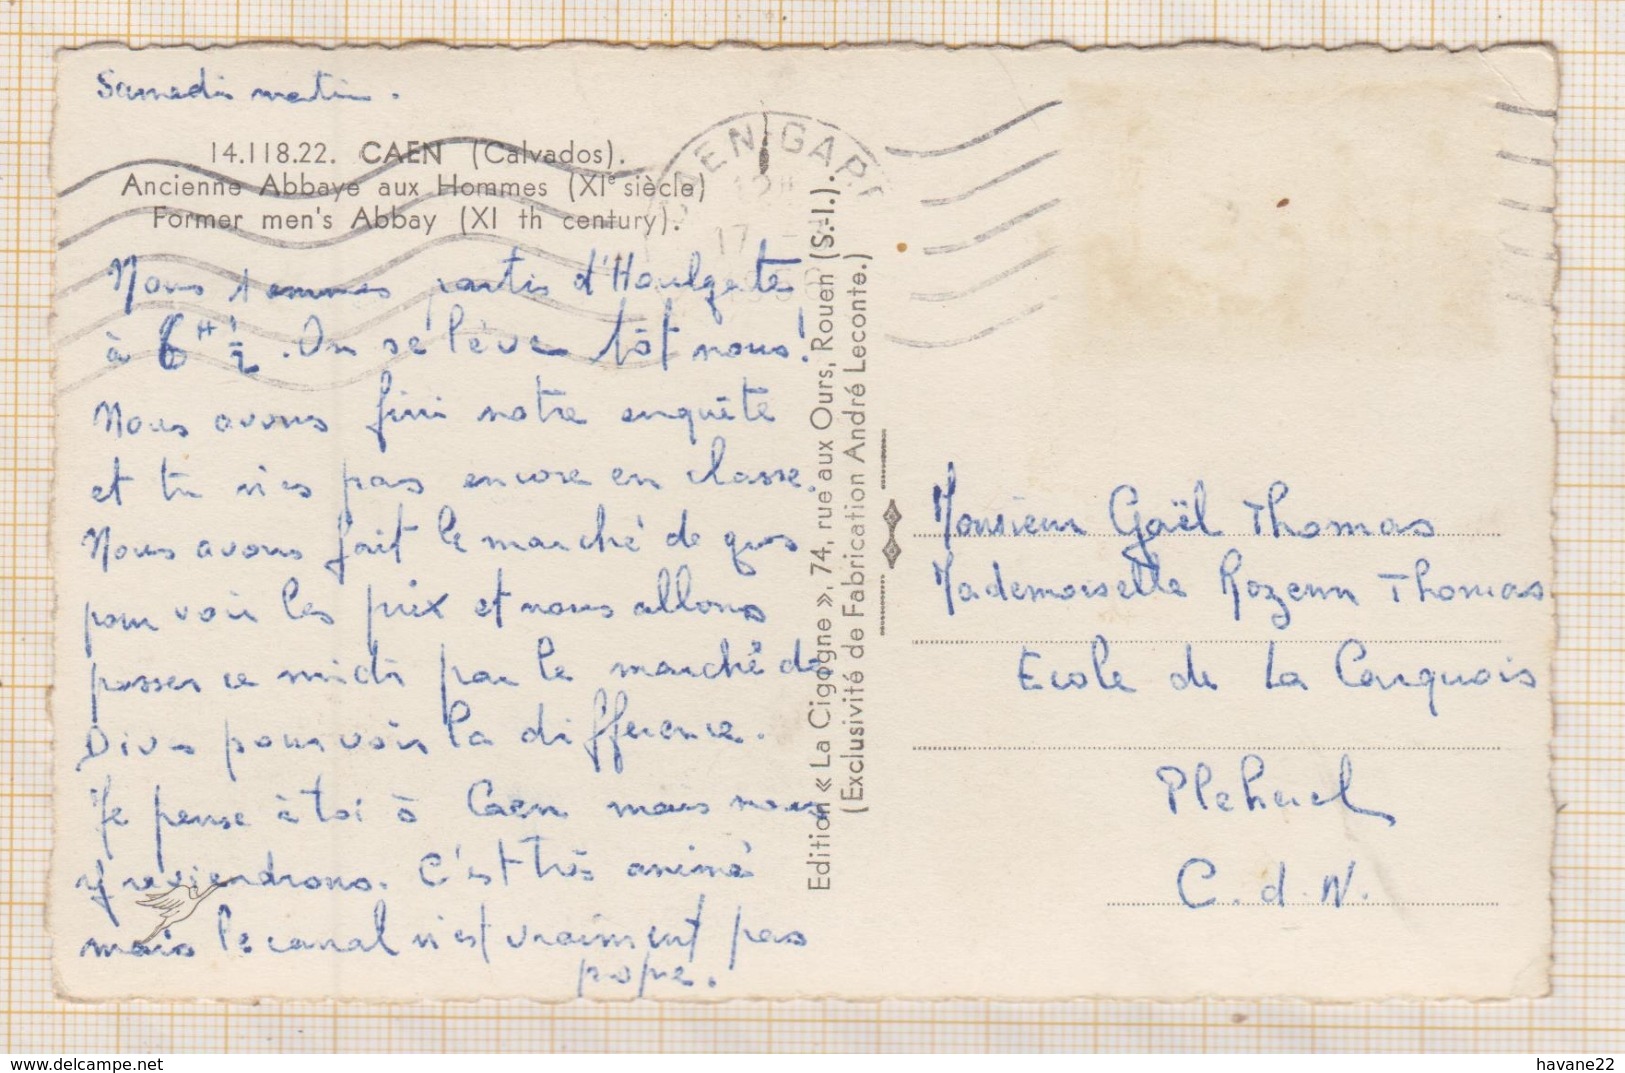 Samedi matin.
14.118.22. CAEN (Calvados).
Ancienne Abbaye aux Hommes (XIe siècle)
Former men's Abbay (XI th century).
Nous sommes partis d'Houlgate
à 6H 1/2. On se lève tôt nous!
Nous avons fini notre enquête
et tu n'es pas encore en classe.
Nous avons fait le marché de gros
pour voir les prix et nous allons
passer ce midi par le marché de
Dives pour voir la différence.
Je pense à toi à Caen mais nous
y reviendrons. C'est très animé
mais le canal n'est vraiment pas
propre.
CAEN GARE
17
Edition « La Cigogne », 74, rue aux Ours, Rouen (S.-I.).
(Exclusivité de Fabrication André Leconte.)
Monsieur Gaël Thomas
Mademoiselle Rozenn Thomas
Ecole de La Carquois
Plehérel
C.d.N.
www.delcampe.net
havane22